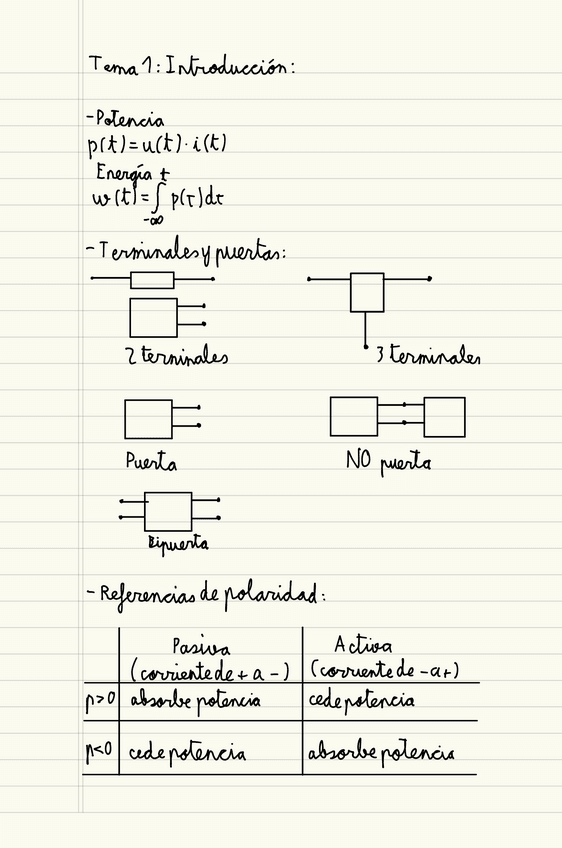 Tema 1: Introducción:
-Potencia
p(t)=u(t)·i(t)
Energía
w(t)=∫_{-∞}^{t} p(τ)dτ
-Terminales y puertas:
2 terminales
3 terminales
Puerta
NO puerta
Bipuerta
-Referencias de polaridad:
Pasiva
(corriente de + a -)
Activa
(corriente de - a +)
p>0 absorbe potencia cede potencia
p<0 cede potencia absorbe potencia